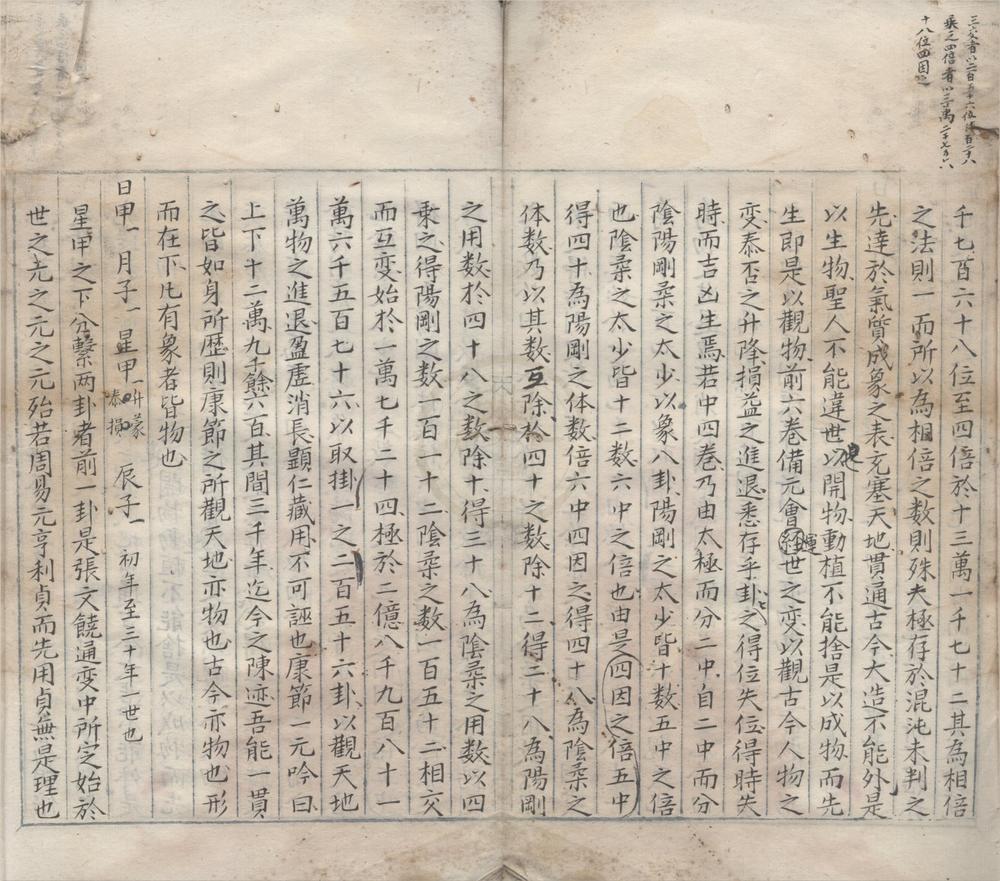 三爻者以二百五十六位
乘之四倍者以三萬二千七百六
十八位四因之
千七百六十八位至四倍於十三萬一千七十二其為相倍
之法則一而所以為相倍之数則殊夫極存於混沌未判之
先達於氣質成象之表充塞天地貫通古今大造不能外是
以生物聖人不能違世以開物動植不能捨是以成物而先
生即是以觀物前六卷備元會經世之变以觀古今人物之
変泰否之升降損益之進退悉存乎卦之得位失位得時失
時而吉凶生焉若中四卷乃由太極而分二中自二中而分
陰陽剛柔之太少以象八卦陽剛之太少皆十数五中之倍
也陰柔之太少皆十二数六中之倍也由是四因之倍五中
得四十為陽剛之体数倍六中四因之得四十八為陰柔之
体数乃以其数互除於四十之数除十二得二十八為陽剛
之用数於四十八之数除十得三十八為陰柔之用数以四
乘之得陽剛之数一百一十二陰柔之数一百五十二相交
而互変始於一萬七千二十四極於二億八千九百八十一
萬六千五百七十六以取掛一之二百五十六卦以觀天地
萬物之進退盈虛消長顕仁藏用不可誣也康節一元吟曰
上下十二萬九千餘六百其間三千年迄今之陳迹吾能一貫
之皆如身所歷則康節之所觀天地亦物也古今亦物也形
而在下凡有象者皆物也
日甲一 月子一 星甲一 升蒙 泰損 辰子一 初年至三十年一世也
星甲之下分繫两卦者前一卦是張文饒通变中所定始於
世之元之元之元殆若周易元亨利貞而先用貞無是理也